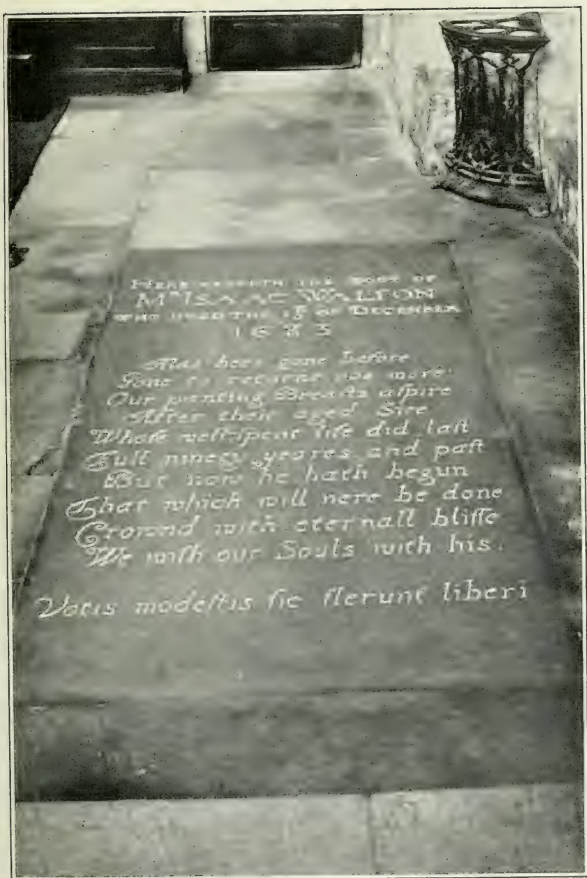 HERE RESTETH THE BODY OF
Mr ISAAC WALTON
WHO DYED THE 15 OF DECEMBER
1683
Alas hees gone before
Gone to returne noe more
Our panting Breasts aſpire
After their aged Sire
Whoſe well ſpent life did laſt
Full ninety yeares and paſt
But now he hath begun
That which will nere be done
Crownd with eternall bliſſe
We wiſh our Souls with his.
Votis modeſtis ſic flerunt liberi